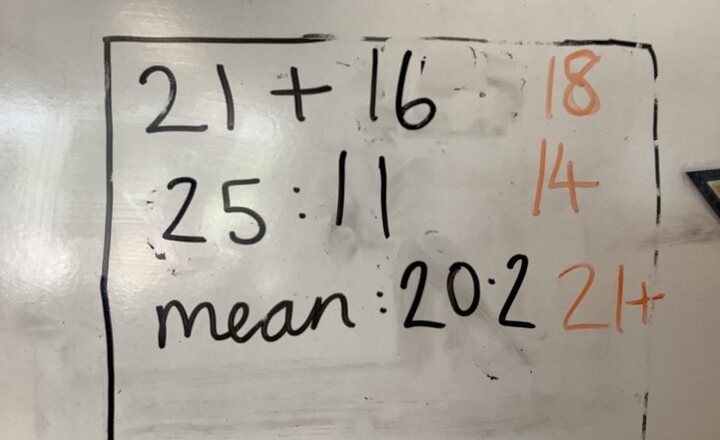 21 + 16 18
25:11 14
mean: 20·2 21+